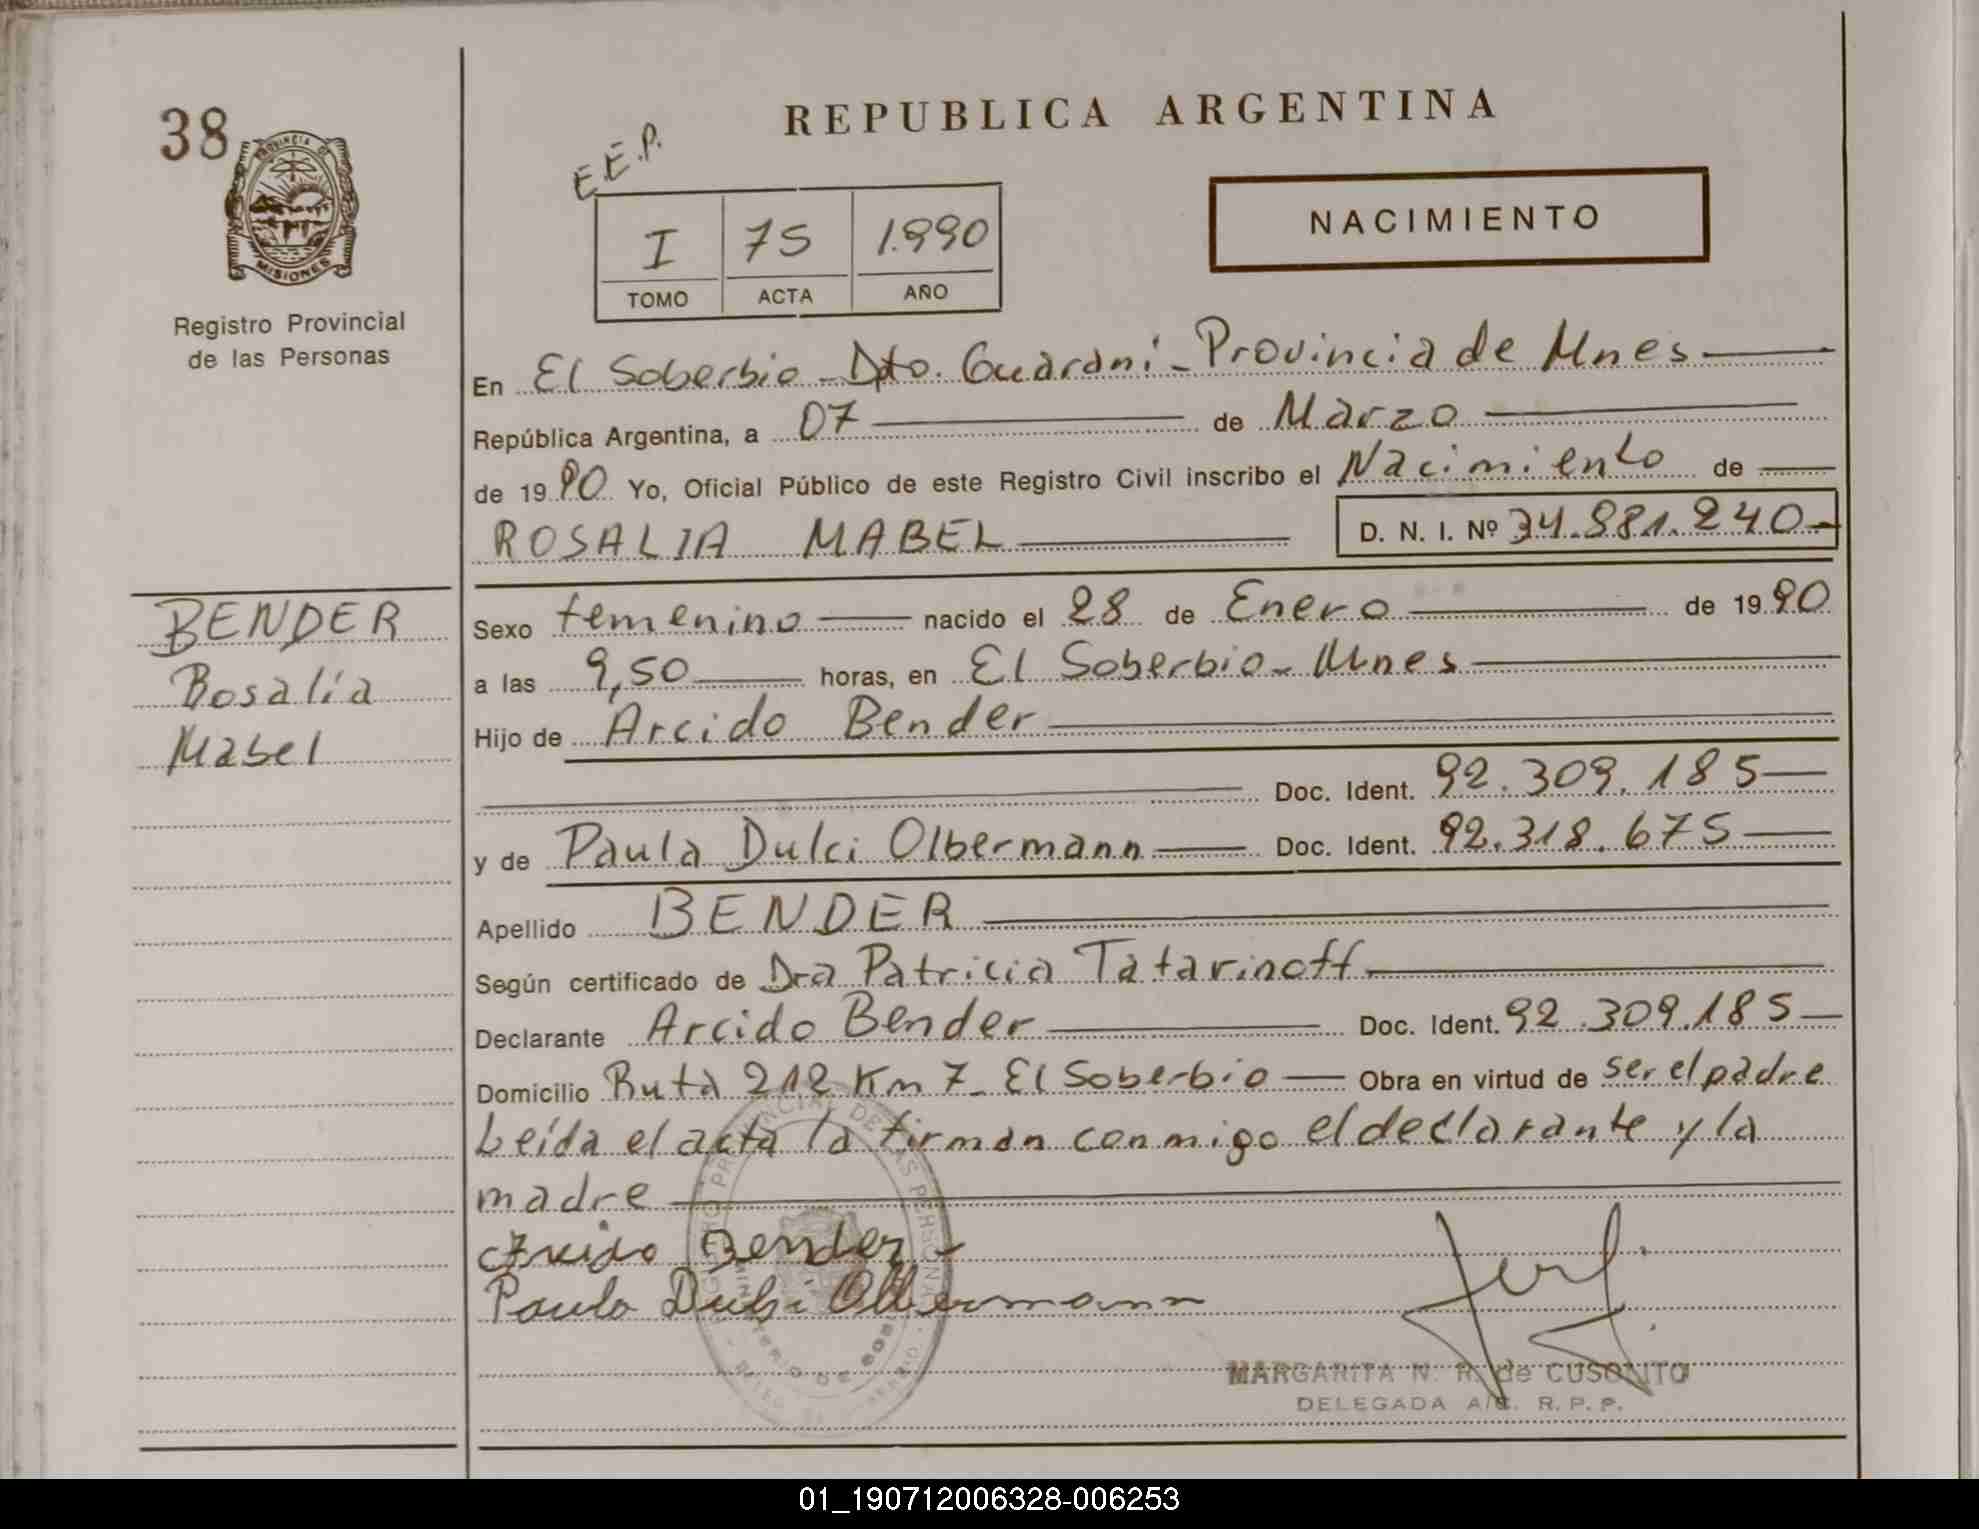 38
PROVINCIA DE
MISIONES
Registro Provincial
de las Personas
REPUBLICA ARGENTINA
E.E.P.
I 75 1.990
TOMO ACTA AÑO
NACIMIENTO
En El Soberbio - Dpto. Guaraní - Provincia de Mnes
República Argentina, a 07 de Marzo
de 1990 Yo, Oficial Público de este Registro Civil inscribo el Nacimiento de
ROSALIA MABEL D. N. I. Nº 34.881.240
BENDER
Rosalía
Mabel
Sexo femenino nacido el 28 de Enero de 1990
a las 9,50 horas, en El Soberbio - Mnes
Hijo de Arcido Bender
Doc. Ident. 92.309.185
y de Paula Dulci Olbermann Doc. Ident. 92.318.675
Apellido BENDER
Según certificado de Dra Patricia Tatarinoff
Declarante Arcido Bender Doc. Ident. 92.309.185
Domicilio Ruta 212 Km 7 - El Soberbio Obra en virtud de ser el padre
Leída el acta la firman conmigo el declarante y la
madre
Arcido Bender
Paula Dulci Olbermann
MARGARITA N. R. de CUSONITO
DELEGADA A/C. R.P.P.
01_190712006328-006253